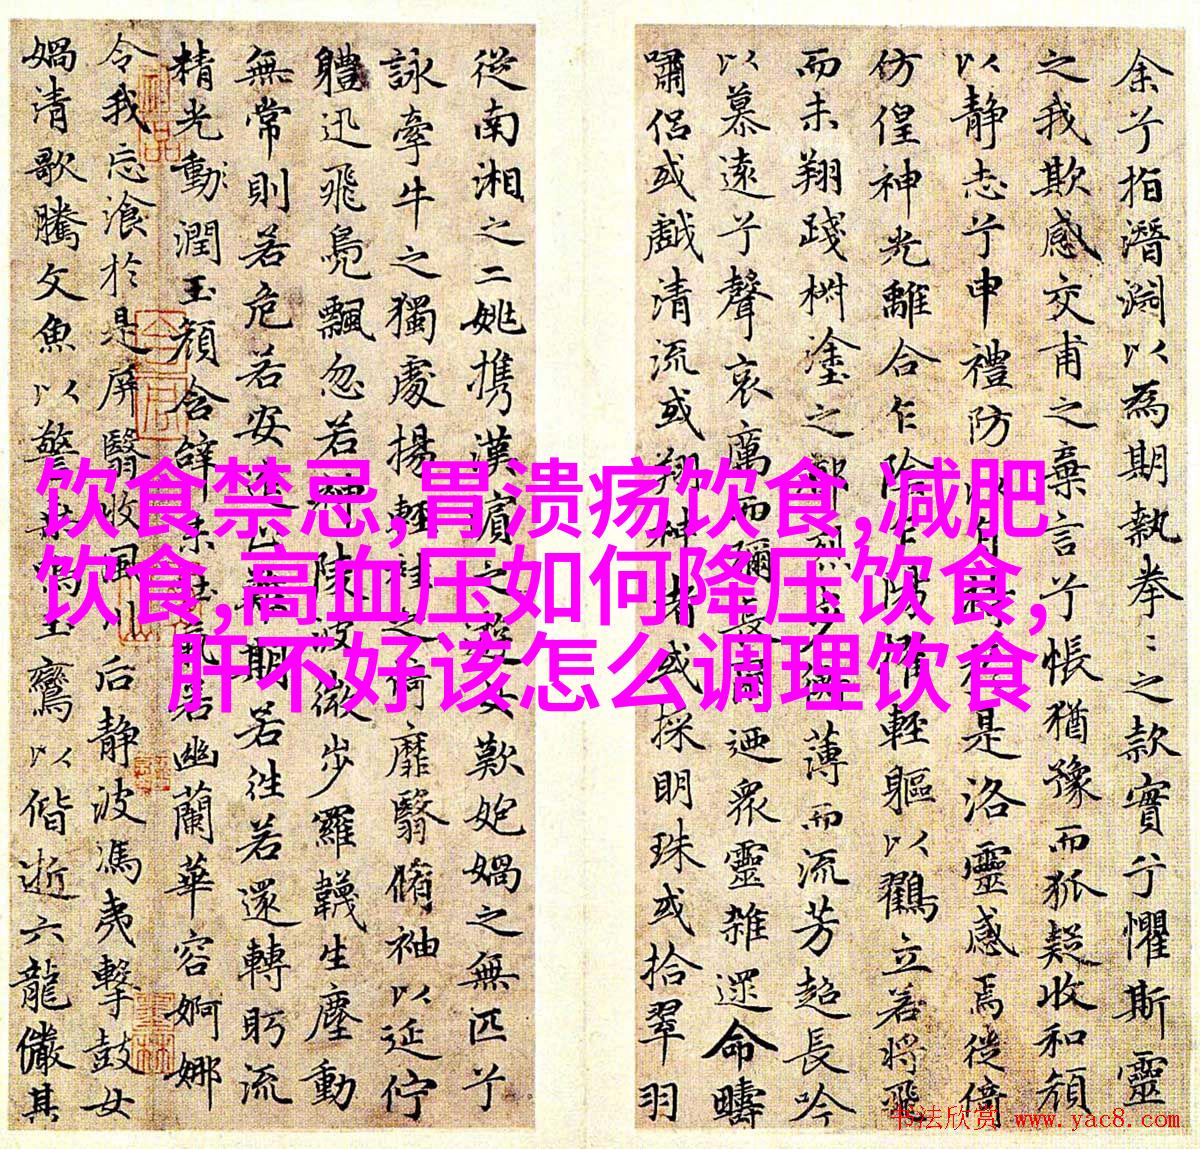 余兮指潛淵以為期執拳〻之款實兮懼斯靈
之我欺感交甫之棄言兮悵猶豫而狐疑收和顏
以静志兮申禮防以自持於是洛靈感焉徙倚
仿偟神光離合乍陰乍陽擢輕軀以鶴立若將飛
而未翔踐椒塗之郁烈步蘅薄而流芳超長吟
以慕遠兮聲哀厲而彌長爾迺衆靈雜遝命疇
嘯侶或戲清流或翔神渚或採明珠或拾翠羽
從南湘之二姚携漢濱之游女歎匏媧之無匹兮
詠牽牛之獨處揚輕袿之猗靡翳脩袖以延佇
體迅飛鳧飄忽若神陵波微步羅韈生塵動
無常則若危若安進止難期若往若還轉眄流
精光動潤玉顏含辭未吐氣若幽蘭華容婀娜
令我忘飡於是屏翳收風川后静波馮夷擊鼓女
媧清歌騰文魚以警乘鳴玉鸞以偕逝六龍儼其
饮食禁忌,胃溃疡饮食,减肥
饮食,高血压如何降压饮食,
肝不好该怎么调理饮食
书法欣赏 www.yac8.com